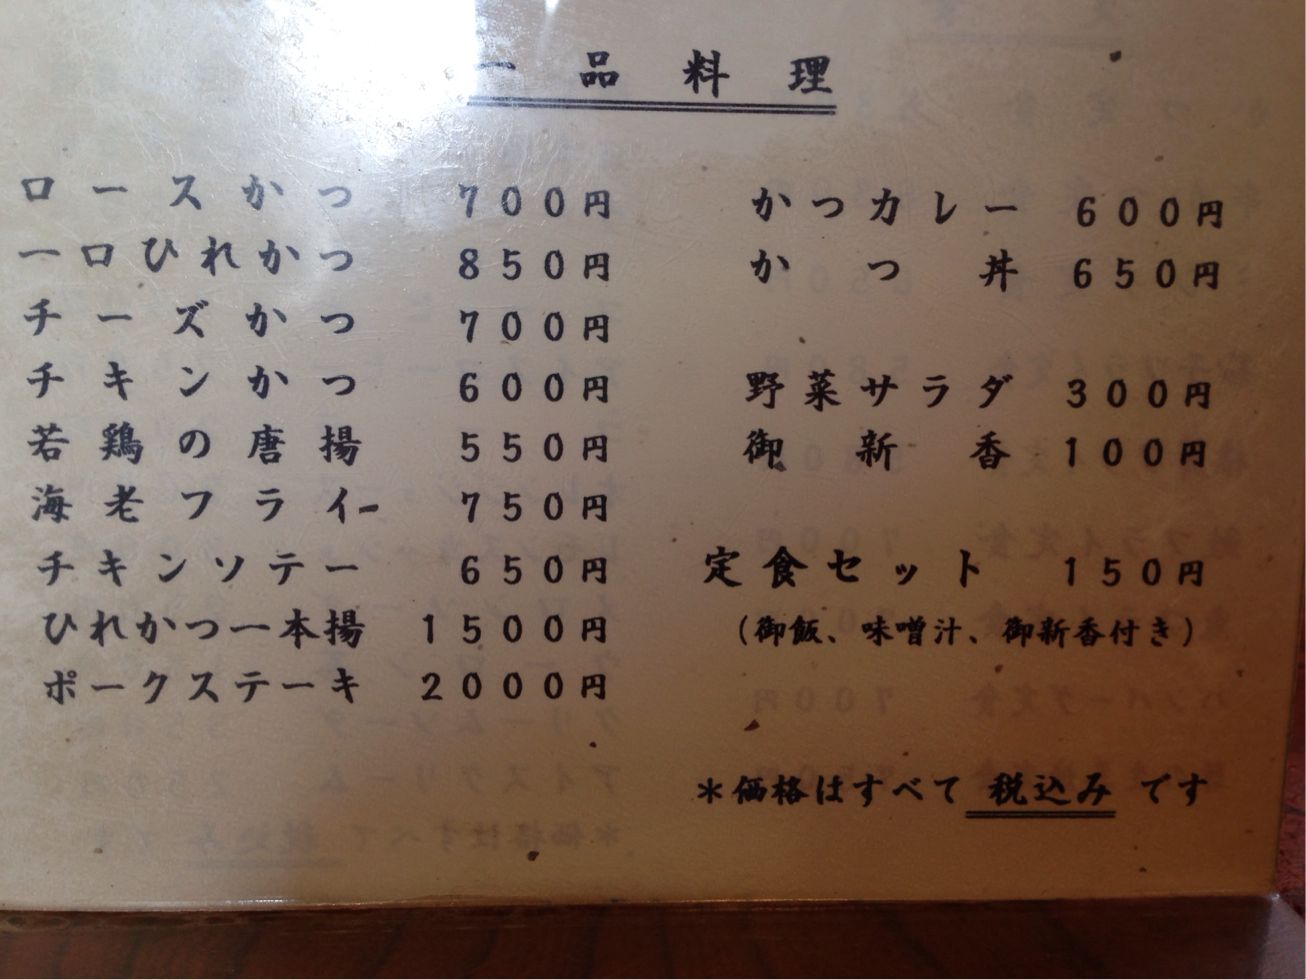 一品料理
ロースかつ 700円
一口ひれかつ 850円
チーズかつ 700円
チキンかつ 600円
若鶏の唐揚 550円
海老フライ 750円
チキンソテー 650円
ひれかつ一本揚 1500円
ポークステーキ 2000円
かつカレー 600円
かつ丼 650円
野菜サラダ 300円
御新香 100円
定食セット 150円
（御飯、味噌汁、御新香付き）
＊価格はすべて 税込み です